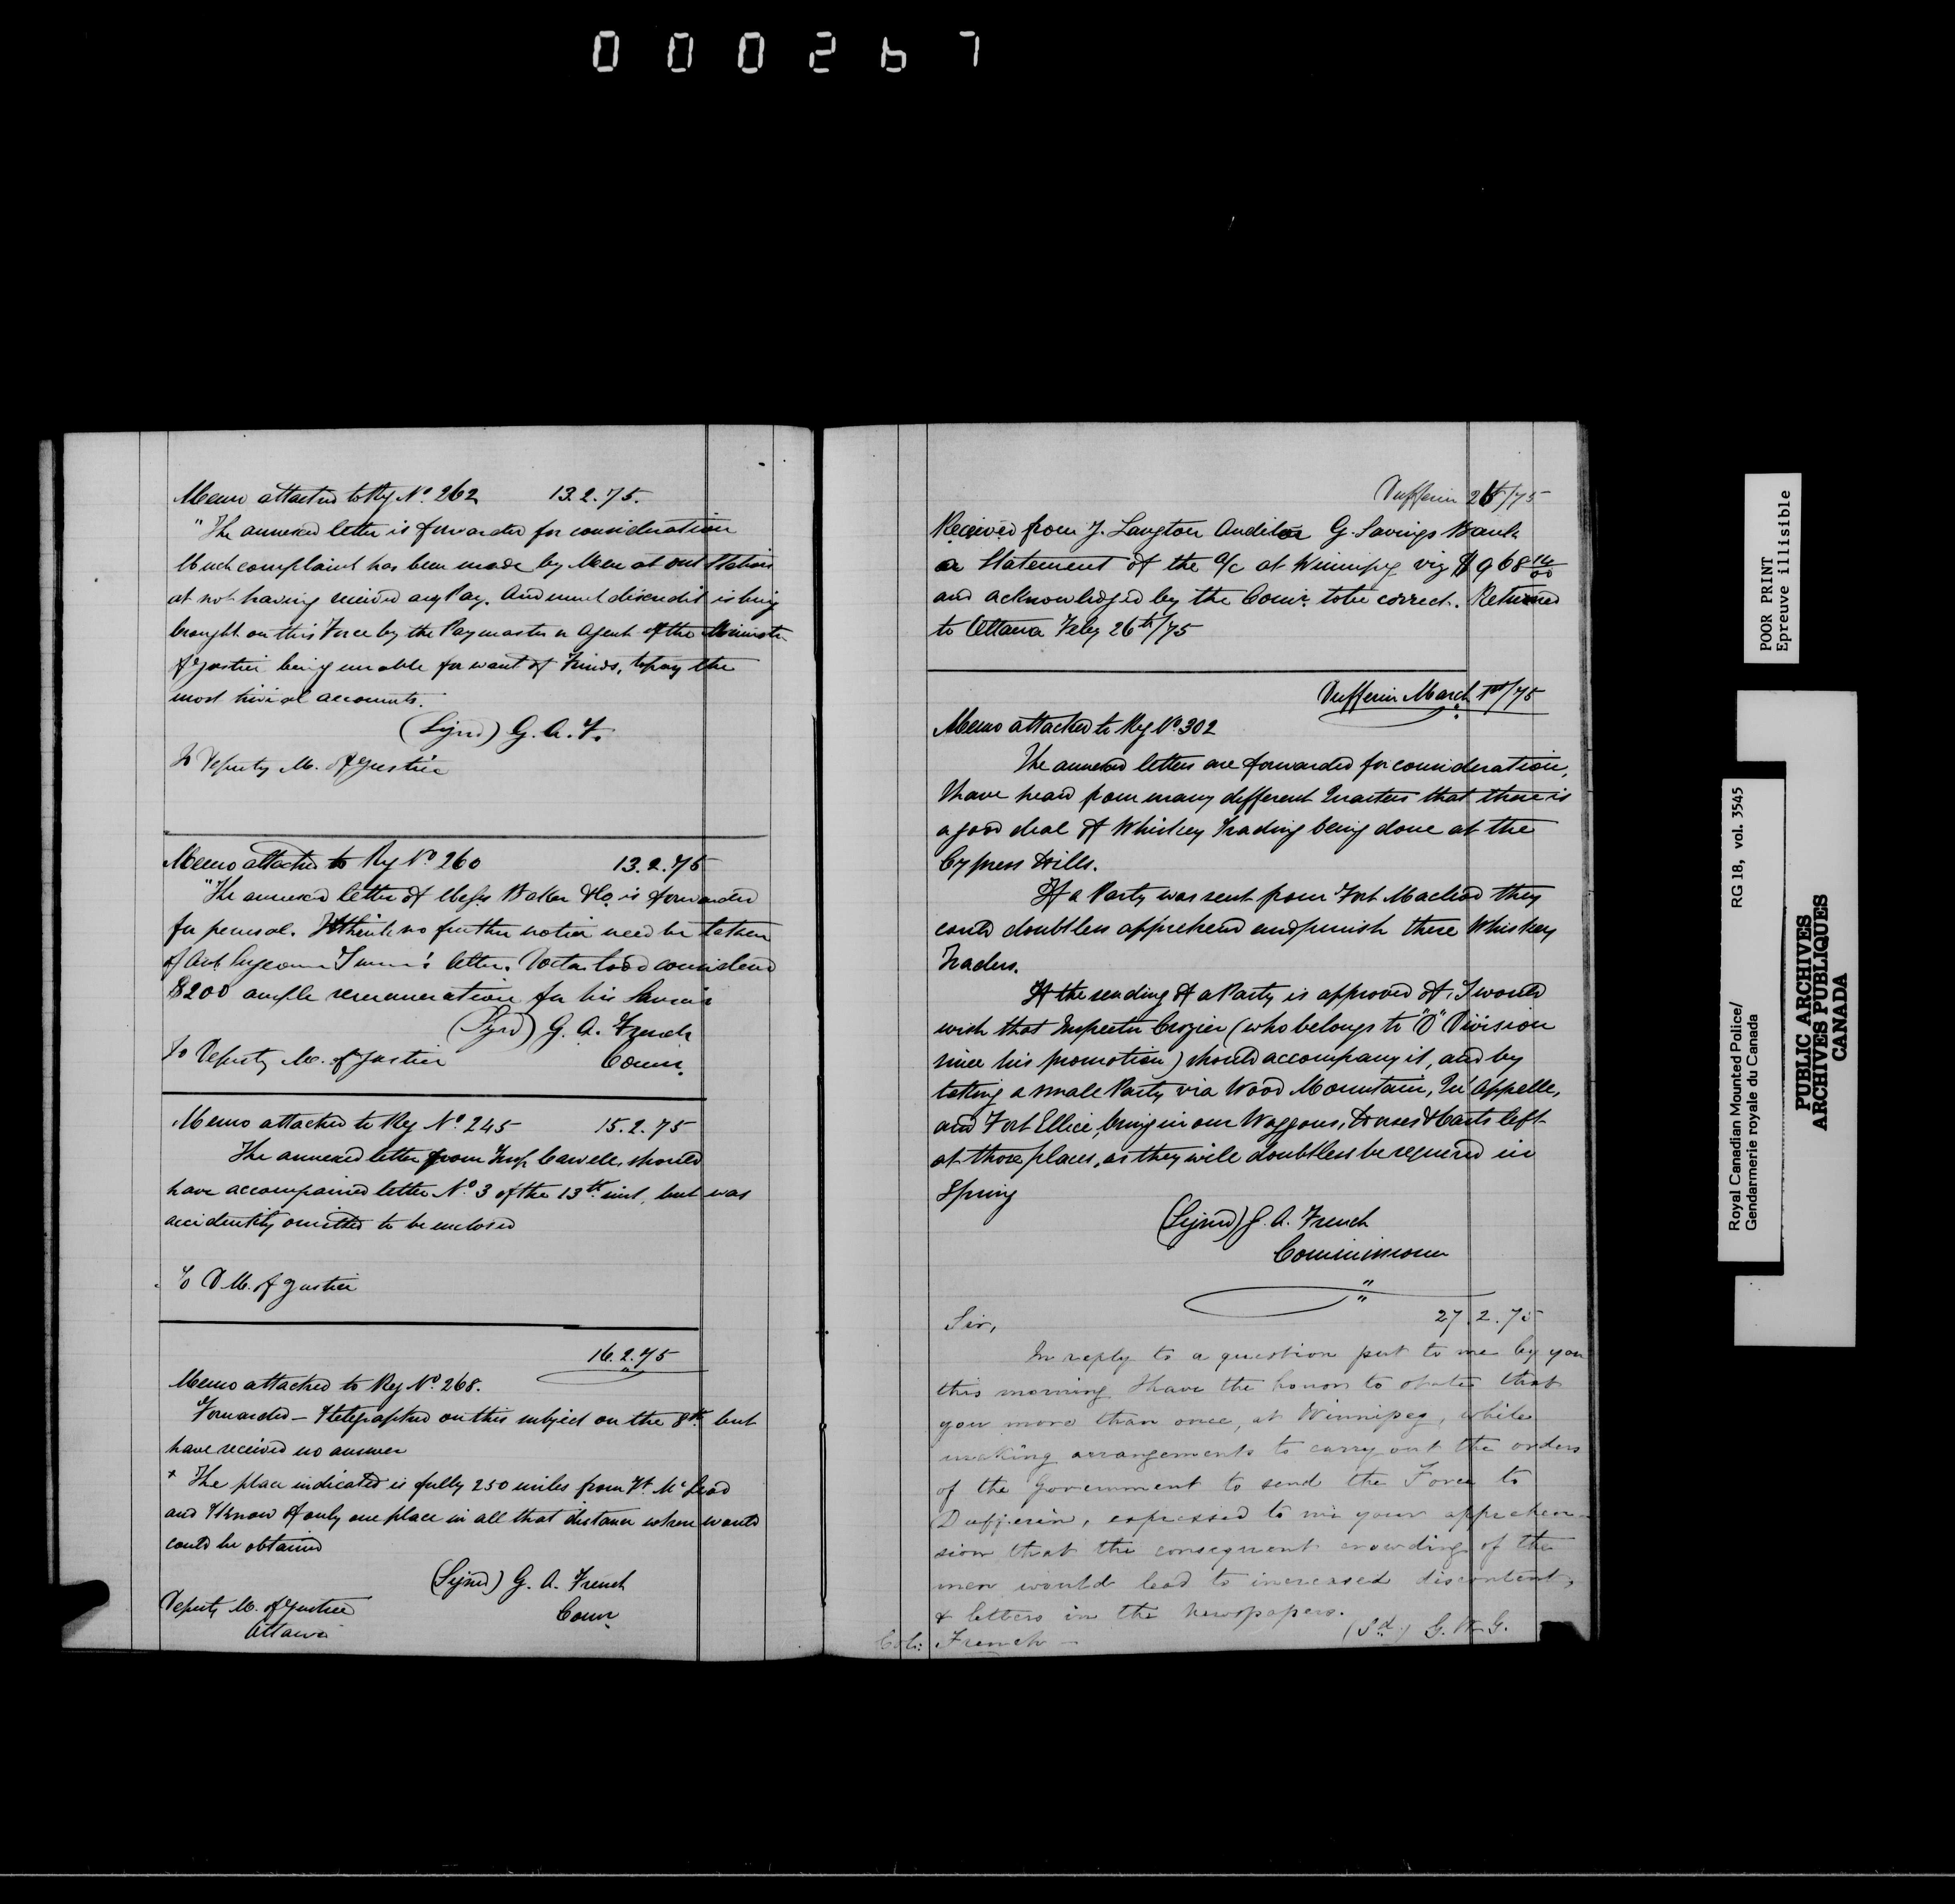 000267
Memo attached to Reg Nº 262 13.2.75.
"The annexed letter is forwarded for consideration
Much complaint has been made by Men at out Stations
at not having received any Pay. And much discredit is being
brought on this Force by the Paymaster or Agent of the Minister
of Justice being unable for want of Funds, to pay the
most trivial accounts.
(Signd) G. A. F.
To Deputy M. of Justice
Memo attached to Reg Nº 260 13.2.75
"The annexed letter of Messrs Baker & Co. is forwarded
for perusal. I think no further notice need be taken
of letter. Doctor considered
$200 ample remuneration for his Services
(Sgnd) G. A. French
To Deputy M. of Justice Commr.
Memo attached to Reg Nº 245 15.2.75
The annexed letter from Insp. Carvell, should
have accompanied letter Nº 3 of the 13th inst, but was
accidently omitted to be enclosed
To D M. of Justice
16.2.75
Memo attached to Reg Nº 268.
Forwarded – I telegraphed on this subject on the 8th but
have received no answer
+ The place indicated is fully 250 miles from Ft. McLeod
and I know of only one place in all that distance where would
could be obtained
(Signd) G. A. French
Deputy M. of Justice Commr
Ottawa
Dufferin 26/75
Received from J. Langton Auditor G. Savings Bank
a Statement of the a/c at Winnipeg viz $968
and acknowledged by the Comr. to be correct. Returned
to Ottawa Feby 26th/75
Dufferin March 1st/75
Memo attached to Reg Nº 302
The annexed letters are forwarded for consideration,
I have heard from many different Quarters that there is
a good deal of Whiskey Trading being done at the
Cypress Hills.
If a Party was sent from Fort Macleod they
could doubtless apprehend and punish these Whiskey
Traders.
If the sending of a Party is approved of, I would
wish that Inspector Crozier (who belongs to "D" Division
since his promotion) should accompany it, and by
taking a small Party via Wood Mountain, Qu'Appelle,
and Fort Ellice, bring in our Waggons, Horses & Carts left
at those places, as they will doubtless be required in
Spring
(Signed) G. A. French
Commissioner
27.2.75
Sir,
In reply to a question put to me by you
this morning I have the honor to state that
you more than once, at Winnipeg, while
making arrangements to carry out the orders
of the Government to send the Force to
Dufferin, expressed to me your apprehen-
sion that the consequent crowding of the
men would lead to increased discontent,
& letters in the Newspapers.
(Sd.) G. W. G.
Col: French –
POOR PRINT
Epreuve illisible
Royal Canadian Mounted Police/ RG 18, vol. 3545
Gendarmerie royale du Canada
PUBLIC ARCHIVES
ARCHIVES PUBLIQUES
CANADA